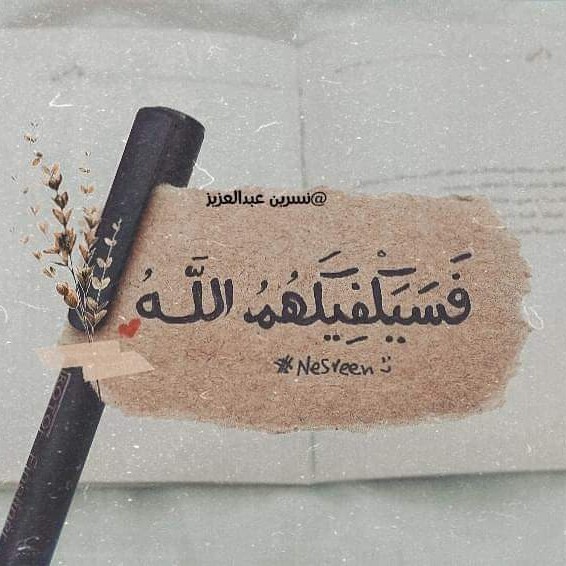 @نسرين عبدالعزيز
فَسَيَكْفِيكَهُمُ اللَّهُ
#Nesreen